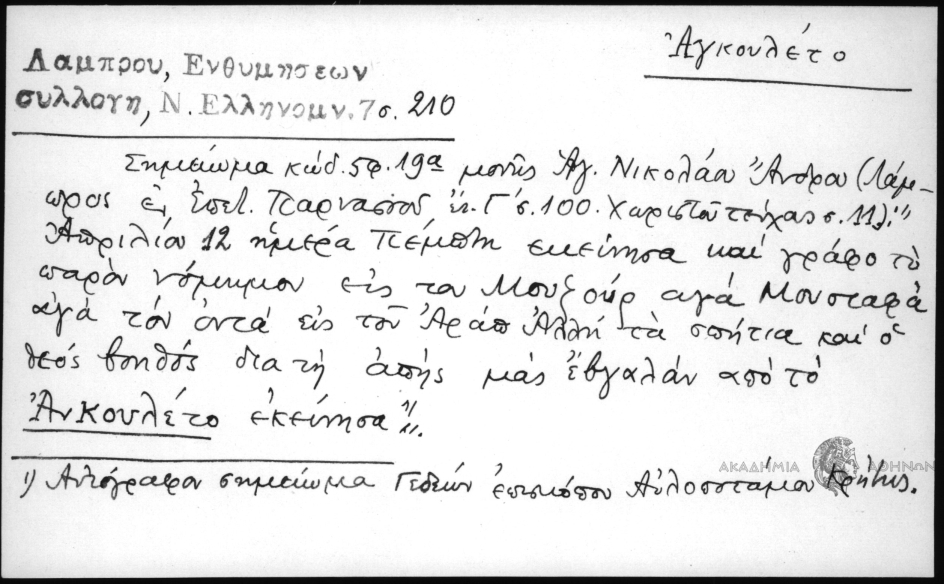 Ἀγκουλέτο
Λαμπρου, Ενθυμησεων
συλλογη, Ν. Ελληνομν. 7 σ. 210
Σημείωμα κώδ. 5 φ. 19α μονῆς Ἁγ. Νικολάου Ἄνδρου (Λάμ-
προς ἐν Ἐπετ. Παρνασσοῦ ἔτ. Γ' σ. 100. Χαριστοῦ τεύχος σ. 11): "
Ἀπριλίου 12 ἡμέρα Πέμπτη εκείνησα καὶ γράφο τὸ
παρὸν νόμημον εἰς τον Μουζούρ αγά Μουσταφὰ
ἀγά τόν ὀντά εἰς τοῦ Ἀράπ Ἀλλή τὰ σπήτια καὶ ὁ
θεός βοηθός δια τὴ ἀπῆς μάς ἔβγαλάν από τὸ
Ἀνκουλέτο ἐκείνησα" 1).
1) Αὐτόγραφον σημείωμα Γεδεών ἐπισκόπου Αὐλοποτάμου Κρήτης.
ΑΚΑΔΗΜΙΑ ΑΘΗΝΩΝ